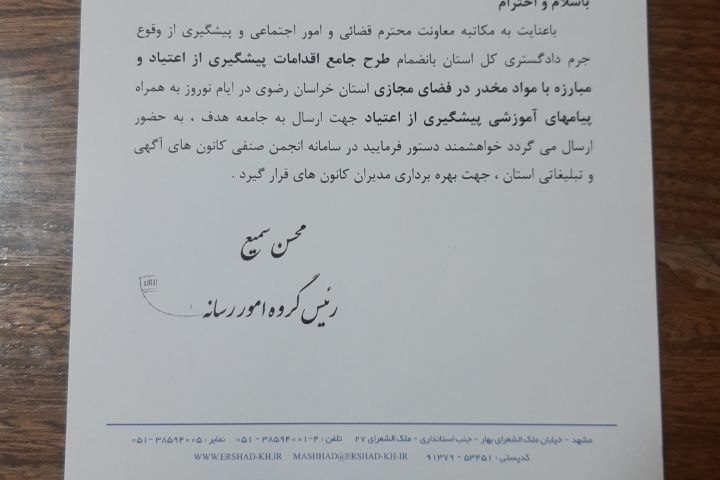 باسلام و احترام
باعنایت به مکاتبه معاونت محترم قضائی و امور اجتماعی و پیشگیری از وقوع
جرم دادگستری کل استان بانضمام طرح جامع اقدامات پیشگیری از اعتیاد و
مبارزه با مواد مخدر در فضای مجازی استان خراسان رضوی در ایام نوروز به همراه
پیامهای آموزشی پیشگیری از اعتیاد جهت ارسال به جامعه هدف ، به حضور
ارسال می گردد خواهشمند دستور فرمایید در سامانه انجمن صنفی کانون های آگهی
و تبلیغاتی استان ، جهت بهره برداری مدیران کانون های قرار گیرد .
محسن سمیع
رئیس گروه امور رسانه
مشهد - خیابان ملک الشعرای بهار - جنب استانداری - ملک الشعرای ۲۷ تلفن : ۴-۳۸۵۹۴۰۰۱ - ۰۵۱ نمابر : ۳۸۵۹۴۰۰۵ - ۰۵۱
کدپستی : ۵۳۴۵۱ - ۹۱۳۷۹ MASHHAD@ERSHAD-KH-IR WWW.ERSHAD-KH.IR